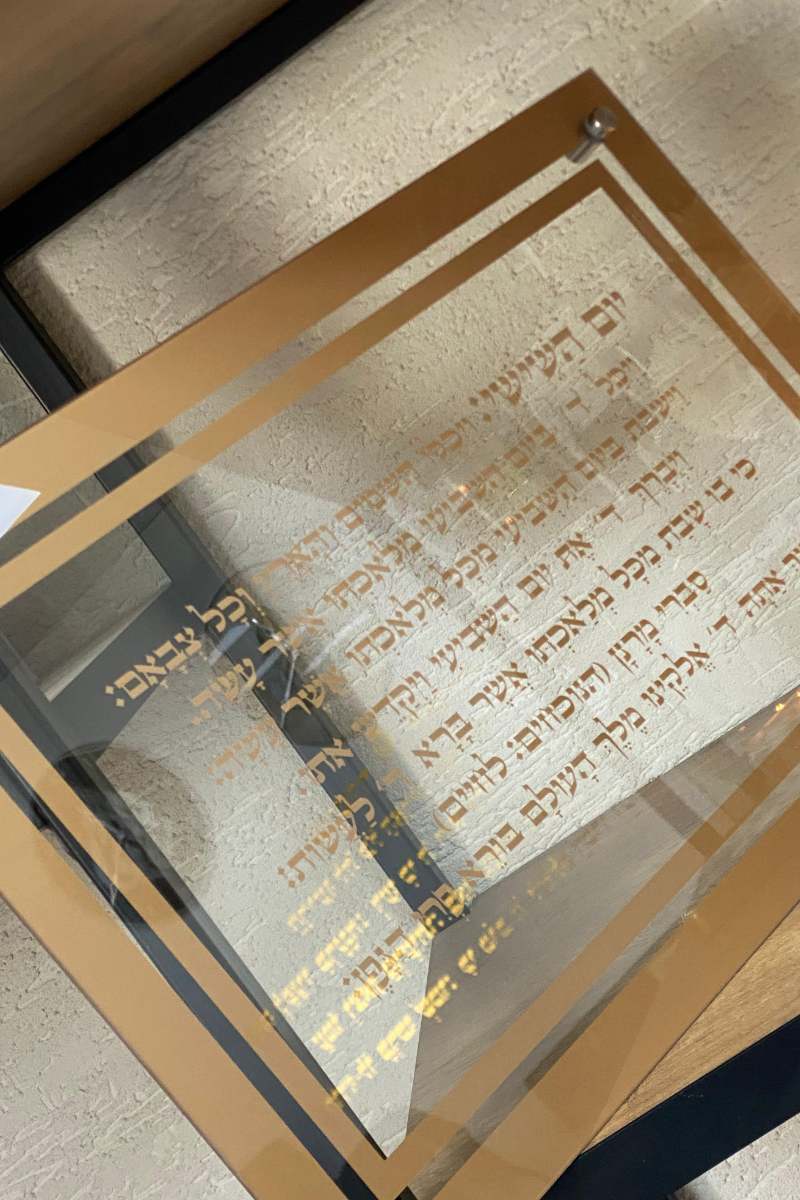 יוֹם הַשִּׁישִׁי: וַיְכֻלּוּ הַשָּׁמַיִם וְהָאָרֶץ וְכָל צְבָאָם:
וַיְכַל ד' בַּיּוֹם הַשְּׁבִיעִי מְלַאכְתּוֹ אֲשֶׁר עָשָׂה.
וַיִּשְׁבֹּת בַּיּוֹם הַשְּׁבִיעִי מִכָּל מְלַאכְתּוֹ אֲשֶׁר עָשָׂה:
וַיְבָרֶךְ ד' אֶת יוֹם הַשְּׁבִיעִי וַיְקַדֵּשׁ אֹתוֹ.
כִּי בוֹ שָׁבַת מִכָּל מְלַאכְתּוֹ אֲשֶׁר בָּרָא ד' לַעֲשׂוֹת:
סַבְרִי מָרָנָן (הנוכחים: לחיים)
אַתָּה ד' אֱלֹקֵינוּ מֶלֶךְ הָעוֹלָם בּוֹרֵא פְּרִי הַגָּפֶן: